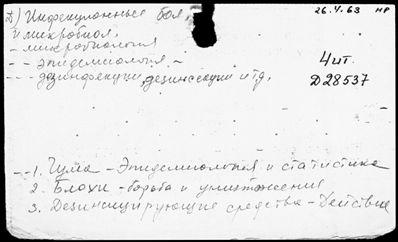 26.V.63 НР
Д) Инфекционные бол.
и микробиол.
- микробиология
- - эпидемиология -
- - - дезинфекции, дезинсекции и т.д.
4 шт.
D28537
1. Чума - Эпидемиология и статистика
2. Блохи - борьба и уничтожения
3. Дезинсицирующие средства - Действие